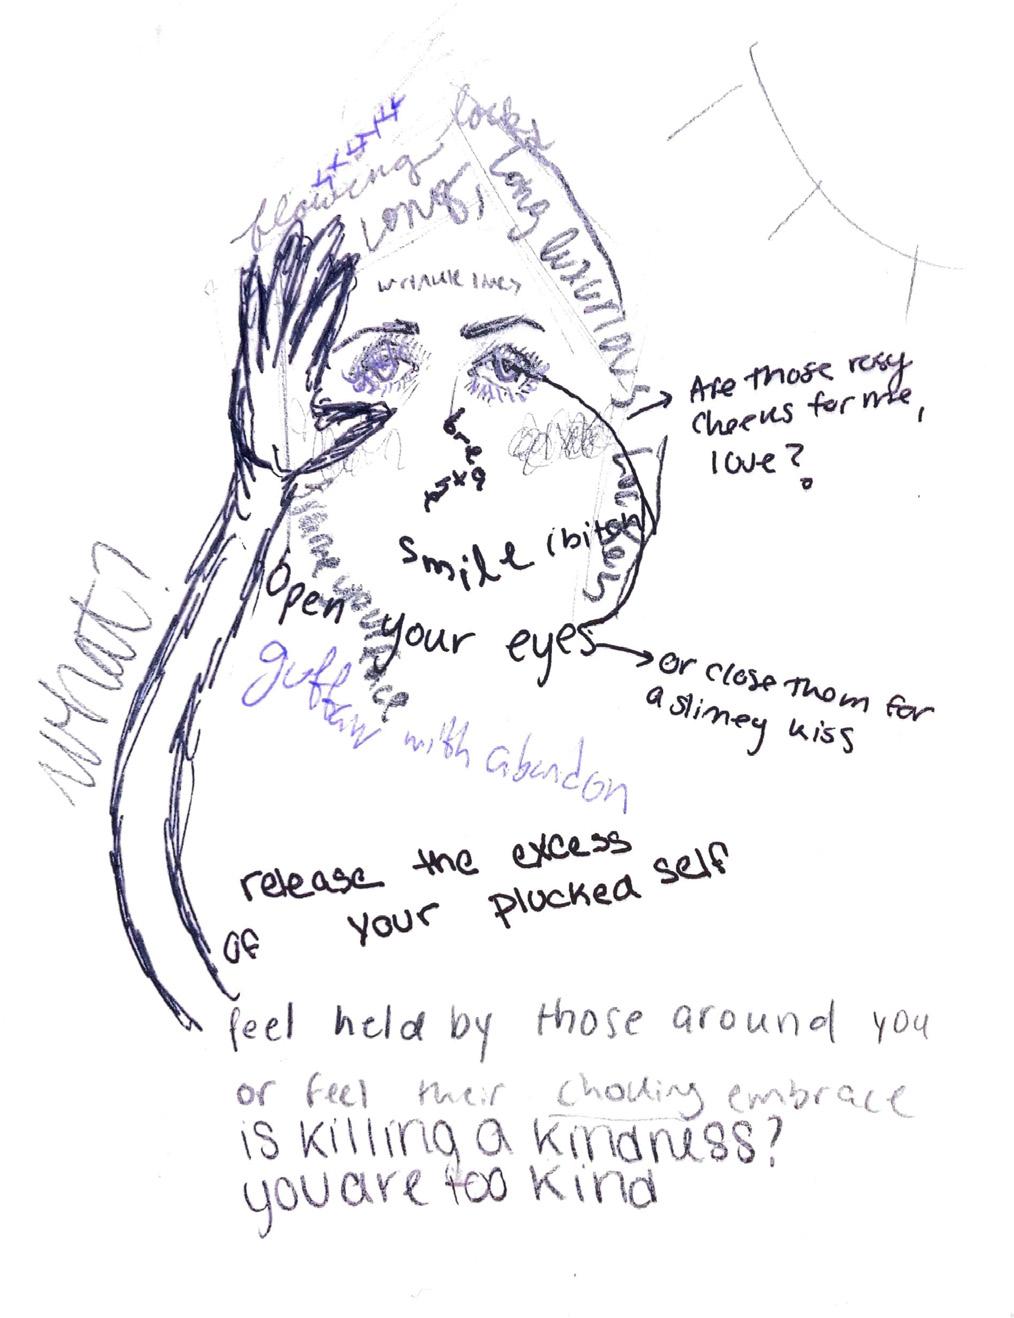 locks
flowing
long,
long luxurious
wrinkle lines
Are those rosy
cheeks for me,
love?
smile (bitch
What?
open your eyes
or close them for
a slimey kiss
guffaw with abandon
release the excess
of your plucked self
feel held by those around you
or feel their choking embrace
is killing a kindness?
you are too kind